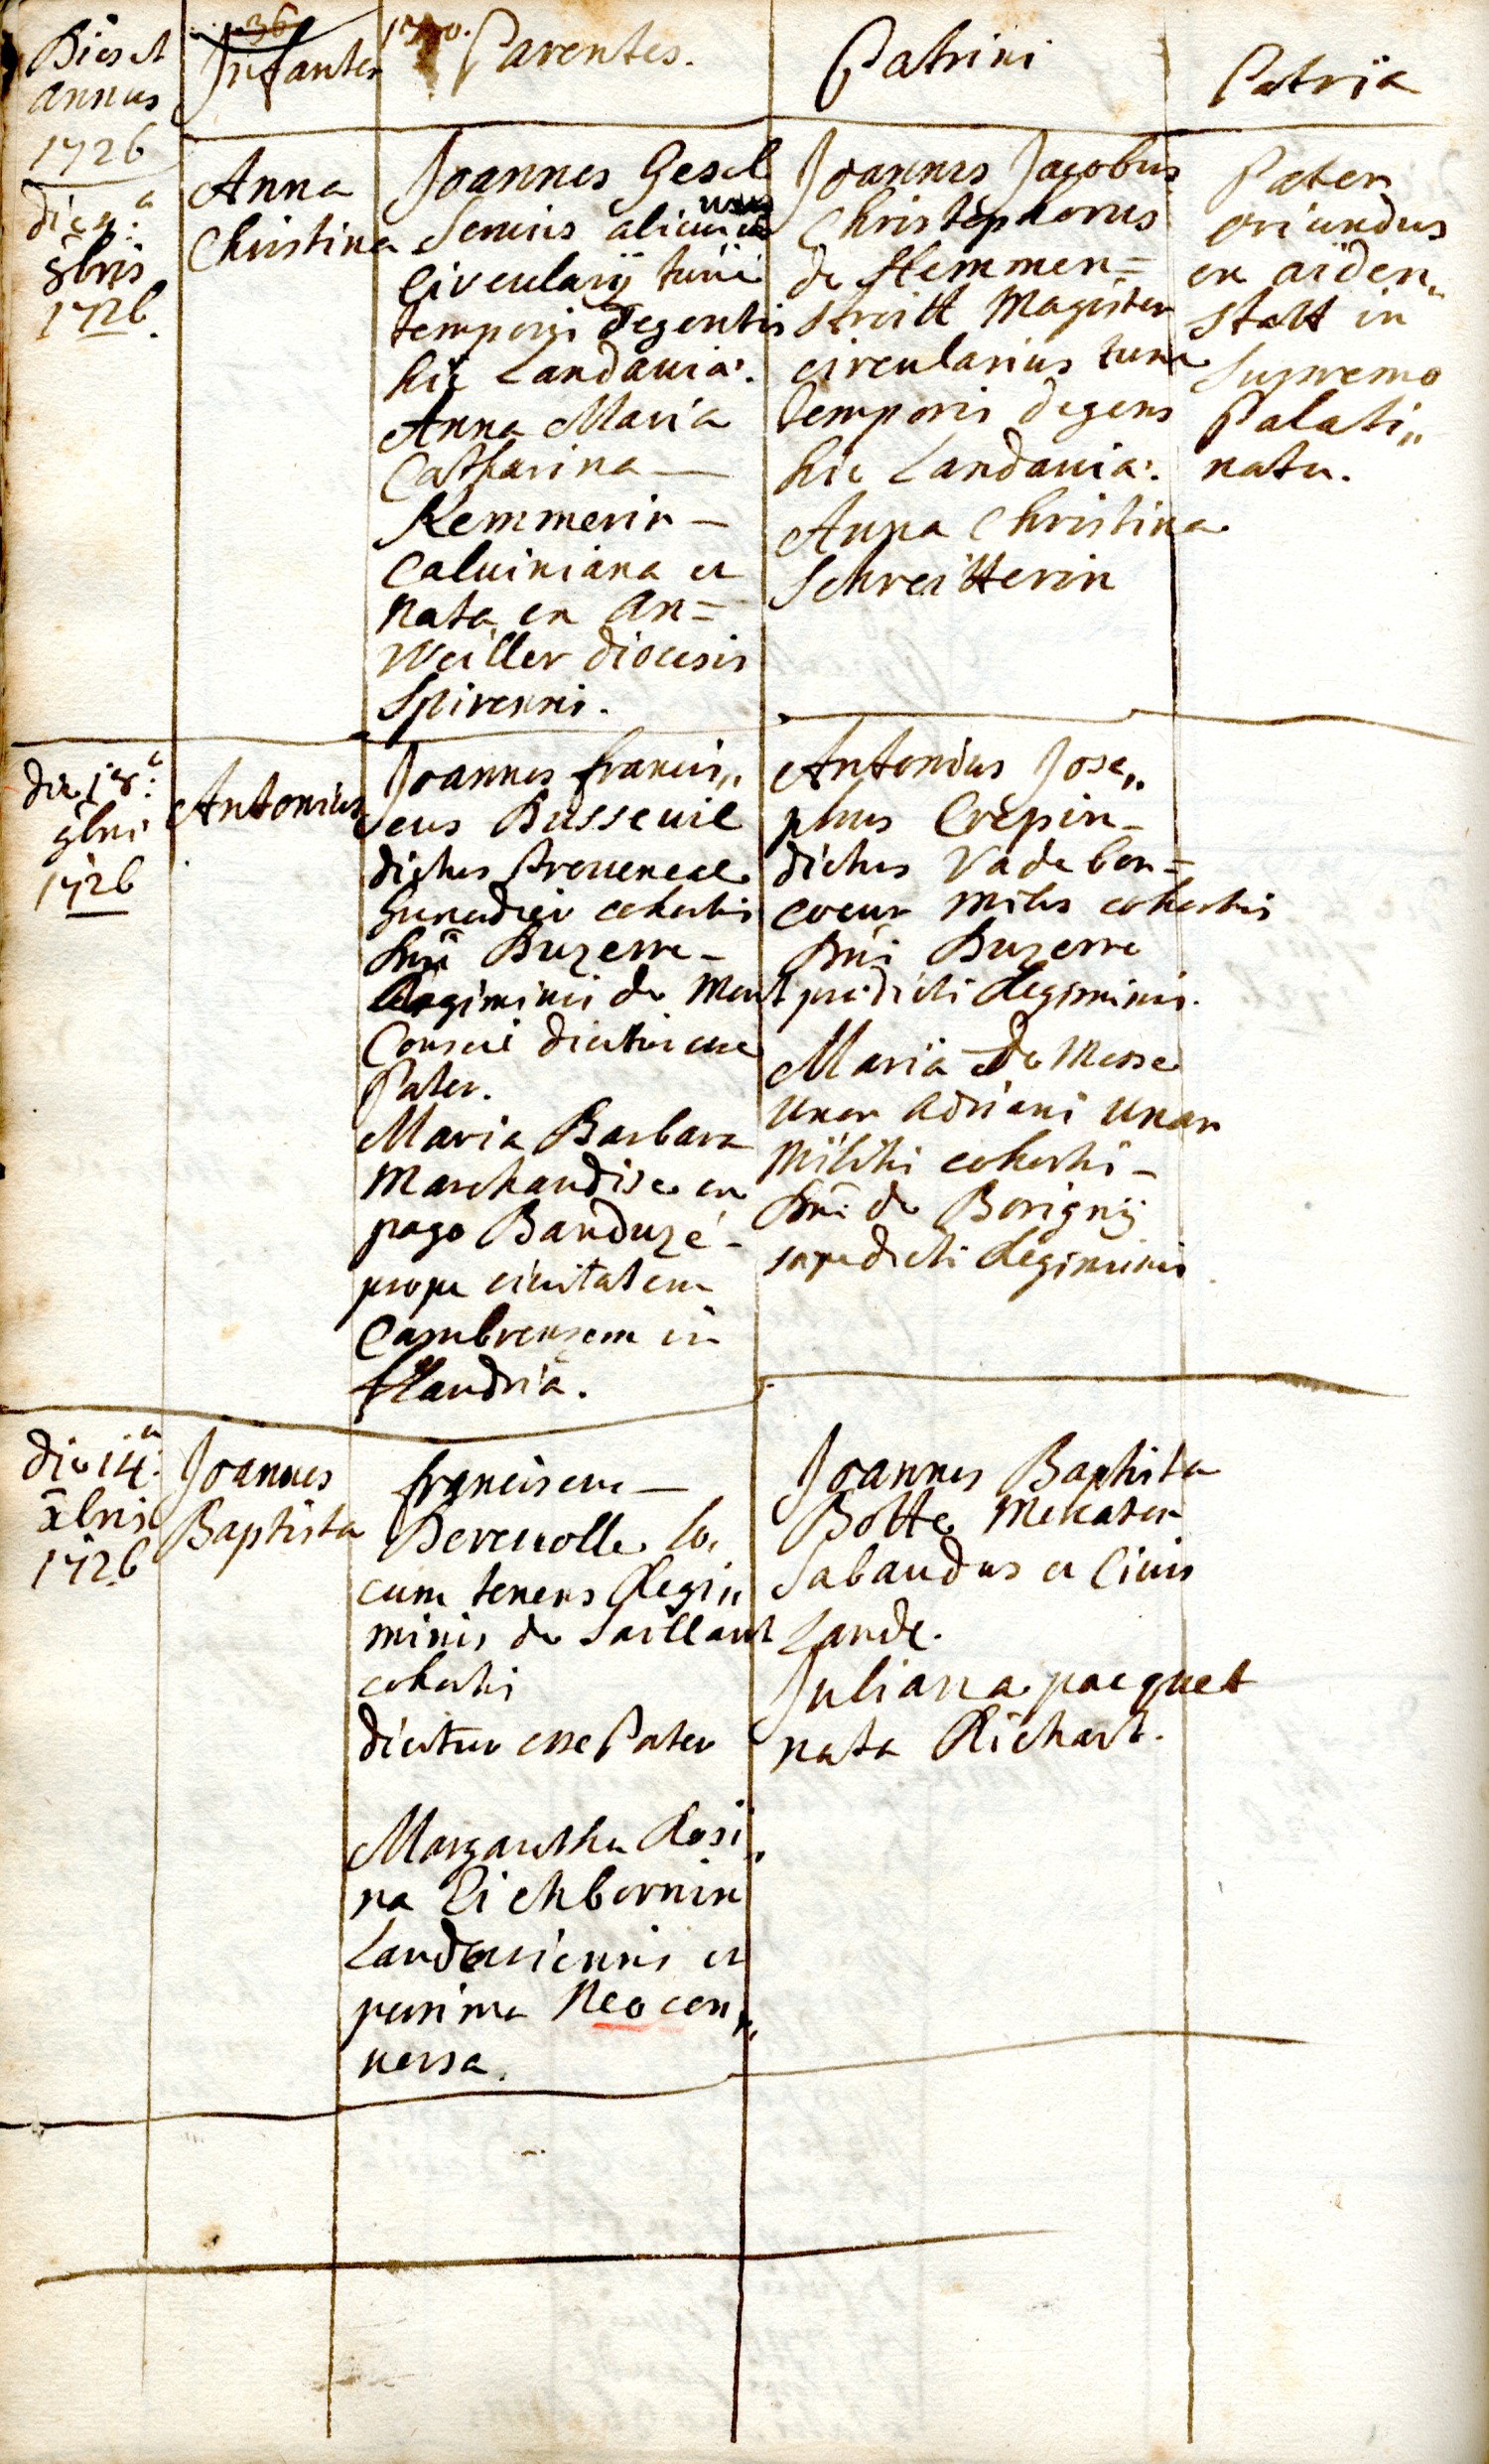 36
1720.
Dies et
annus
1726
Infantes
Parentes.
Patrini
Patria
die
8bris
1726.
Anna
Christina
Joannes Gesel
servus alicuius
circularij tunc
temporis degentis
hic Landaviæ.
Anna Maria
Catharina —
Kemmerin —
calviniana et
nata ex An=
weiller diocesis
Spirensis.
Joannes Jacobus
Christophorus
de Hemmen=
stroitt Magister
circularius tunc
temporis degens
hic Landaviæ.
Anna Christina
Schreitterin
Pater
oriundus
ex aiden„
statt in
Supremo
Palati„
natu.
die 18.a
9bris
1726
Antonius
Joannes Francis„
cus Busseuil
dictus Provencal
Grenadier cohortis
Dni Buzerre —
Regiminis de Mont
Conseil dicitur esse
Pater.
Maria Barbara
Marchandise ex
pago Banduzé —
prope civitatem
Cambrensem in
Flandria.
Antonius Jose„
phus Crépin —
dictus Va de bon=
coeur miles cohortis
Dni Buzerre
prædicti Regiminis.
Maria De Messe
uxor Adriani
militis cohortis —
Dni de Borignÿ
supradicti Regiminis
die 14.a
Xbris
1726
Joannes
Baptista
franciscus —
Derevolle lo„
cum tenens Regi„
minis de Saillant
cohortis
dicitur esse Pater
Margaretha Rosi„
na Eichbornin
Landaviensis et
Neocon„
versa.
Joannes Baptista
Botte Mercator
Sabaudus et Civis
Land.
Juliana pacquet
nata Richart.